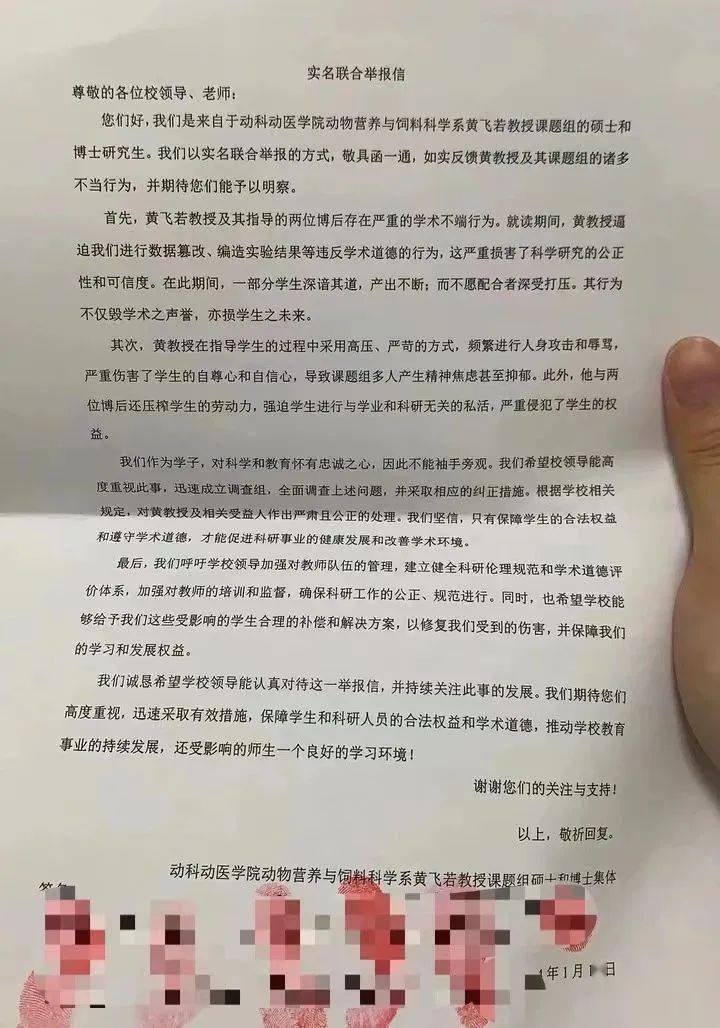 实名联合举报信
尊敬的各位校领导、老师：
您们好，我们是来自于动科动医学院动物营养与饲料科学系黄飞若教授课题组的硕士和
博士研究生。我们以实名联合举报的方式，敬具函一通，如实反馈黄教授及其课题组的诸多
不当行为，并期待您们能予以明察。
首先，黄飞若教授及其指导的两位博后存在严重的学术不端行为。就读期间，黄教授逼
迫我们进行数据篡改、编造实验结果等违反学术道德的行为，这严重损害了科学研究的公正
性和可信度。在此期间，一部分学生深谙其道，产出不断；而不愿配合者深受打压。其行为
不仅毁学术之声誉，亦损学生之未来。
其次，黄教授在指导学生的过程中采用高压、严苛的方式，频繁进行人身攻击和辱骂，
严重伤害了学生的自尊心和自信心，导致课题组多人产生精神焦虑甚至抑郁。此外，他与两
位博后还压榨学生的劳动力，强迫学生进行与学业和科研无关的私活，严重侵犯了学生的权
益。
我们作为学子，对科学和教育怀有忠诚之心，因此不能袖手旁观。我们希望校领导能高
度重视此事，迅速成立调查组，全面调查上述问题，并采取相应的纠正措施。根据学校相关
规定，对黄教授及相关受益人作出严肃且公正的处理。我们坚信，只有保障学生的合法权益
和遵守学术道德，才能促进科研事业的健康发展和改善学术环境。
最后，我们呼吁学校领导加强对教师队伍的管理，建立健全科研伦理规范和学术道德评
价体系，加强对教师的培训和监督，确保科研工作的公正、规范进行。同时，也希望学校能
够给予我们这些受影响的学生合理的补偿和解决方案，以修复我们受到的伤害，并保障我们
的学习和发展权益。
我们诚恳希望学校领导能认真对待这一举报信，并持续关注此事的发展。我们期待您们
高度重视，迅速采取有效措施，保障学生和科研人员的合法权益和学术道德，推动学校教育
事业的持续发展，还受影响的师生一个良好的学习环境！
谢谢您们的关注与支持！
以上，敬祈回复。
动科动医学院动物营养与饲料科学系黄飞若教授课题组硕士和博士集体
年1月1 日